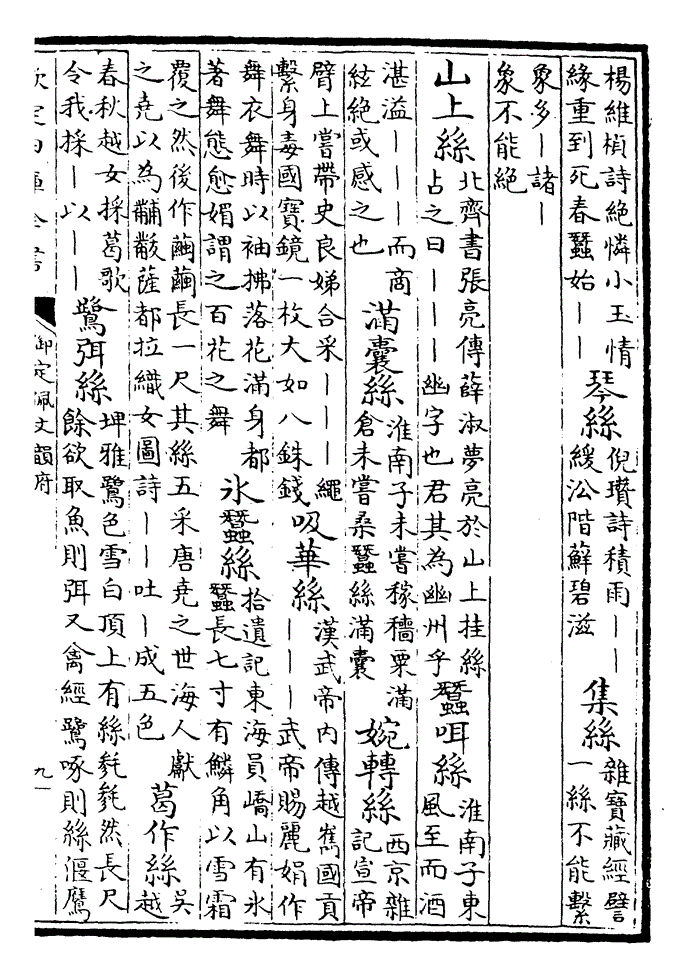 楊維楨詩絶憐小玉情
緣重到死春蠶始｜｜
琴絲
倪瓚詩積雨｜｜
緩㳂階蘚碧滋
集絲
雜寶藏經譬
一絲不能繫
象多｜諸｜
象不能絶
山上絲
北齊書張亮傳薛淑夢亮於山上挂絲
占之曰｜｜｜幽字也君其為幽州乎
蠶咡絲
淮南子東
風至而酒
湛溢｜｜｜而商
絃絶或感之也
滿囊絲
淮南子未嘗稼穡粟滿
倉未嘗桑蠶絲滿囊
婉轉絲
西京雜
記宣帝
臂上嘗帶史良娣合采｜｜｜繩
繫身毒國寶鏡一枚大如八銖錢
吸華絲
漢武帝内傳越嶲國貢
｜｜｜武帝賜麗娟作
舞衣舞時以袖拂落花滿身都
著舞態愈媚謂之百花之舞
氷蠶絲
拾遺記東海員嶠山有氷
蠶長七寸有鱗角以雪霜
覆之然後作繭繭長一尺其絲五采唐堯之世海人獻
之堯以為黼黻薩都拉織女圖詩｜｜吐｜成五色
葛作絲
吳
越
春秋越女採葛歌
令我採｜以｜｜
鷺弭絲
埤雅鷺色雪白頂上有絲毿毿然長尺
餘欲取魚則弭又禽經鷺啄則絲偃鷹
欽定四庫全書
御定佩文韻府
九一